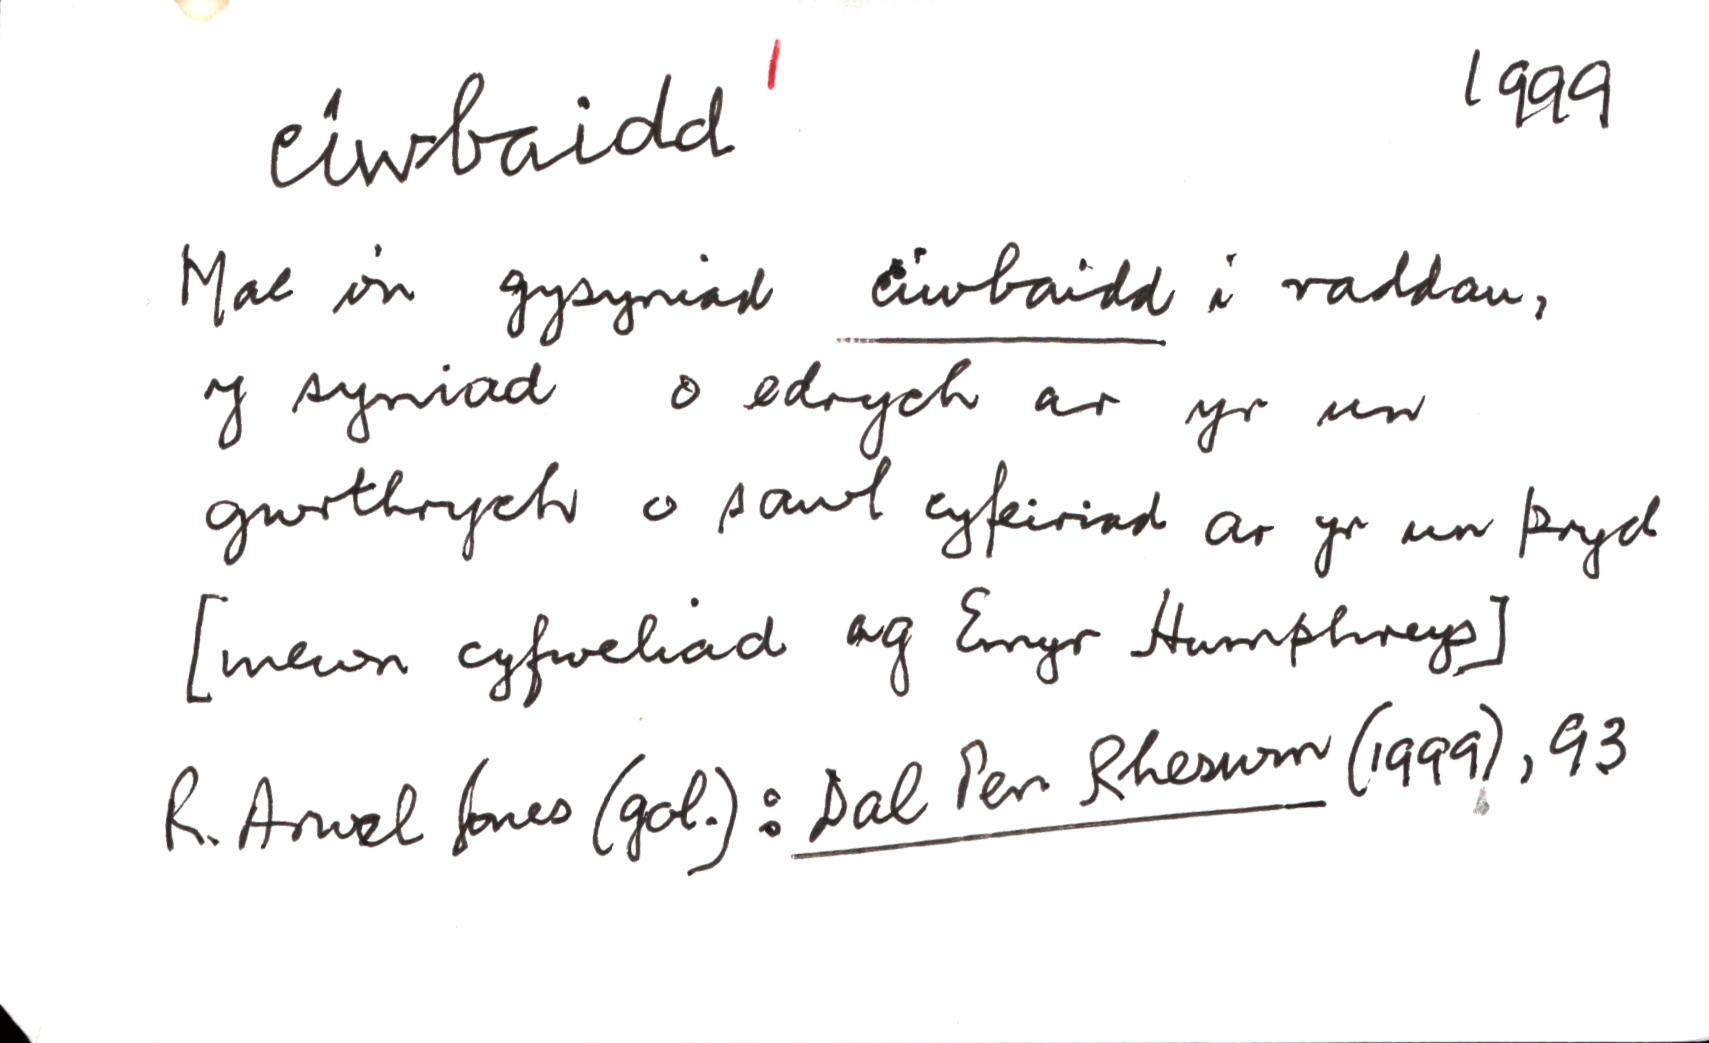 ciwbaidd 1999
Mae o'n gysyniad ciwbaidd i raddau,
y syniad o edrych ar yr un
gwrthrych o sawl cyfeiriad ar yr un pryd
[mewn cyfweliad ag Emyr Humphreys]
R. Arwel Jones (gol.): Dal Pen Rheswm (1999), 93